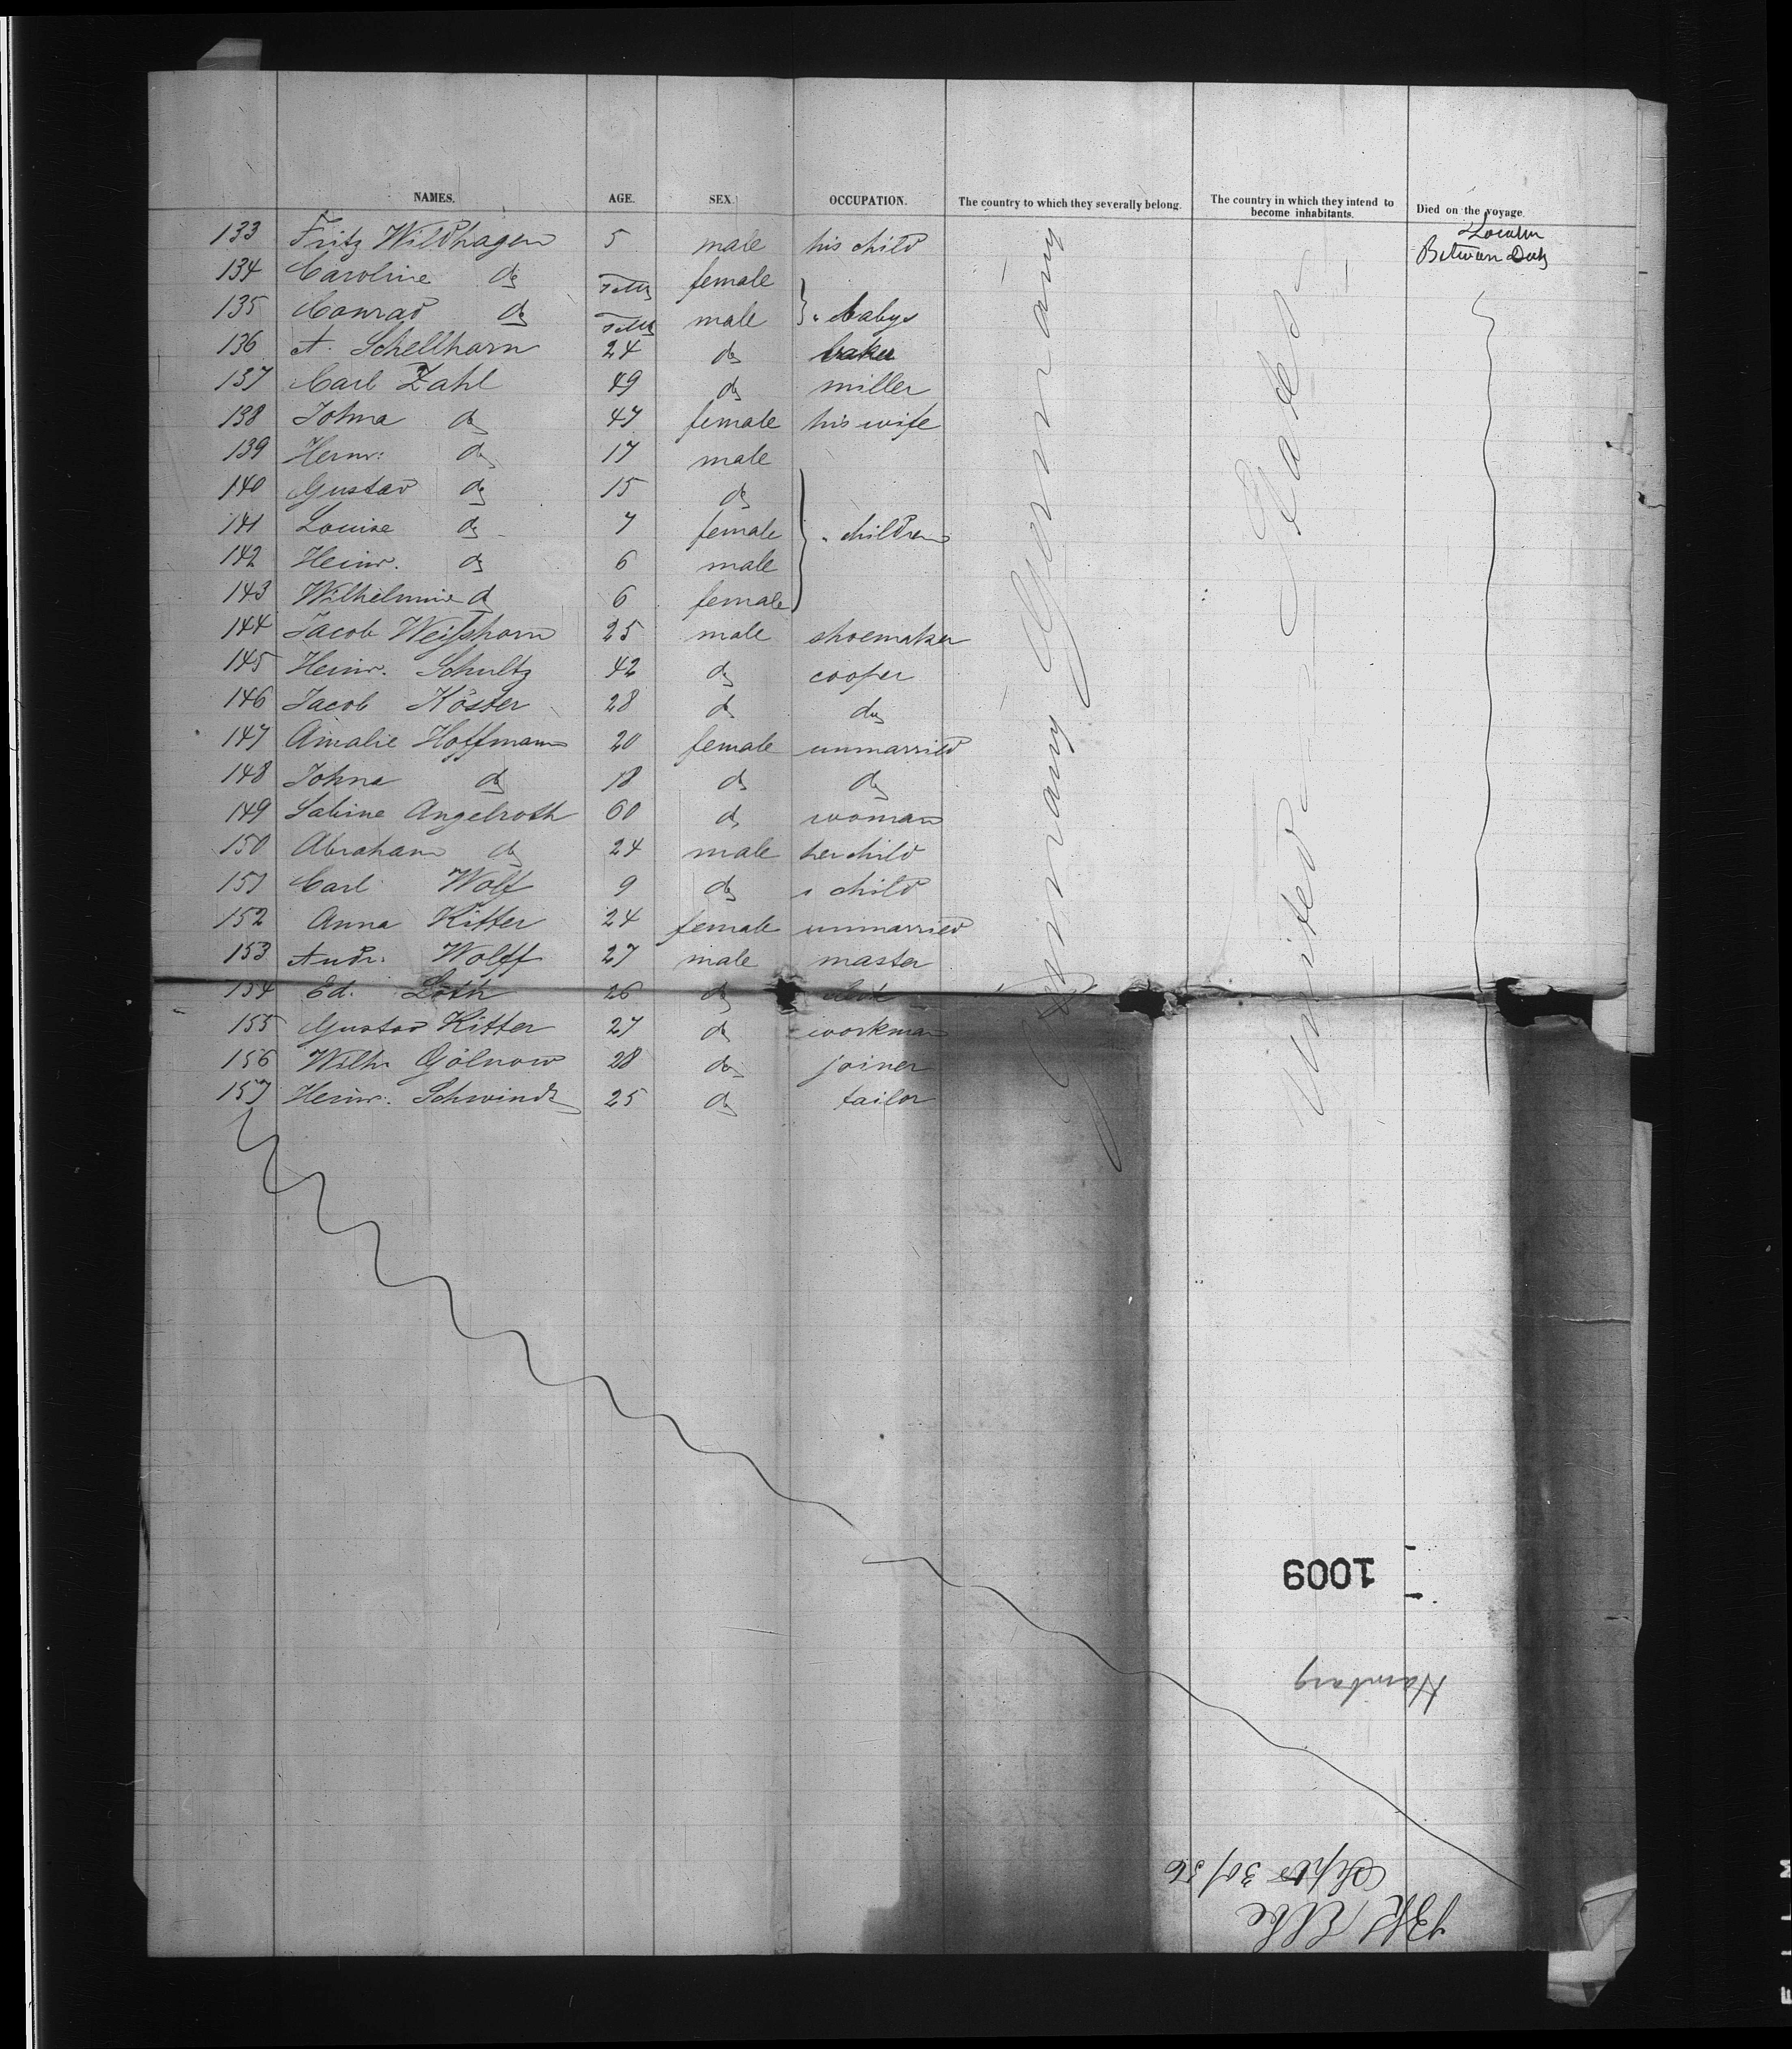 NAMES. AGE. SEX. OCCUPATION. The country to which they severally belong. The country in which they intend to become inhabitants. Died on the voyage.
Between Deck
133 Fritz Wildhagen 5 male his child
134 Caroline do female
135 Conrad do male babys
136 A. Schellhorn 24 do baker
137 Carl Zahl 49 do miller
138 Johna do 47 female his wife
139 Herm: do 17 male
140 Gustav do 15 do
141 Louise do 7 female children
142 Heinr. do 6 male
143 Wilhelmine do 6 female
144 Jacob Weisshorn 25 male shoemaker
145 Heinr. Schultz 42 do cooper
146 Jacob Köster 28 do do
147 Amalie Hoffmann 20 female unmarried
148 Johna do 18 do do
149 Sabine Angelroth 60 do woman
150 Abraham do 24 male her child
151 Carl Wolf 9 do child
152 Anna Kitter 24 female unmarried
153 Andr. Wolff 27 male master
154 Ed. Loth 26 do
155 Gustav Kitter 27 do workman
156 Wilh. Gölnow 28 do joiner
157 Heinr. Schwindt 25 do tailor
Germany Germany
United States
1009
Hamburg
Sept 30/56
Bk Elbe